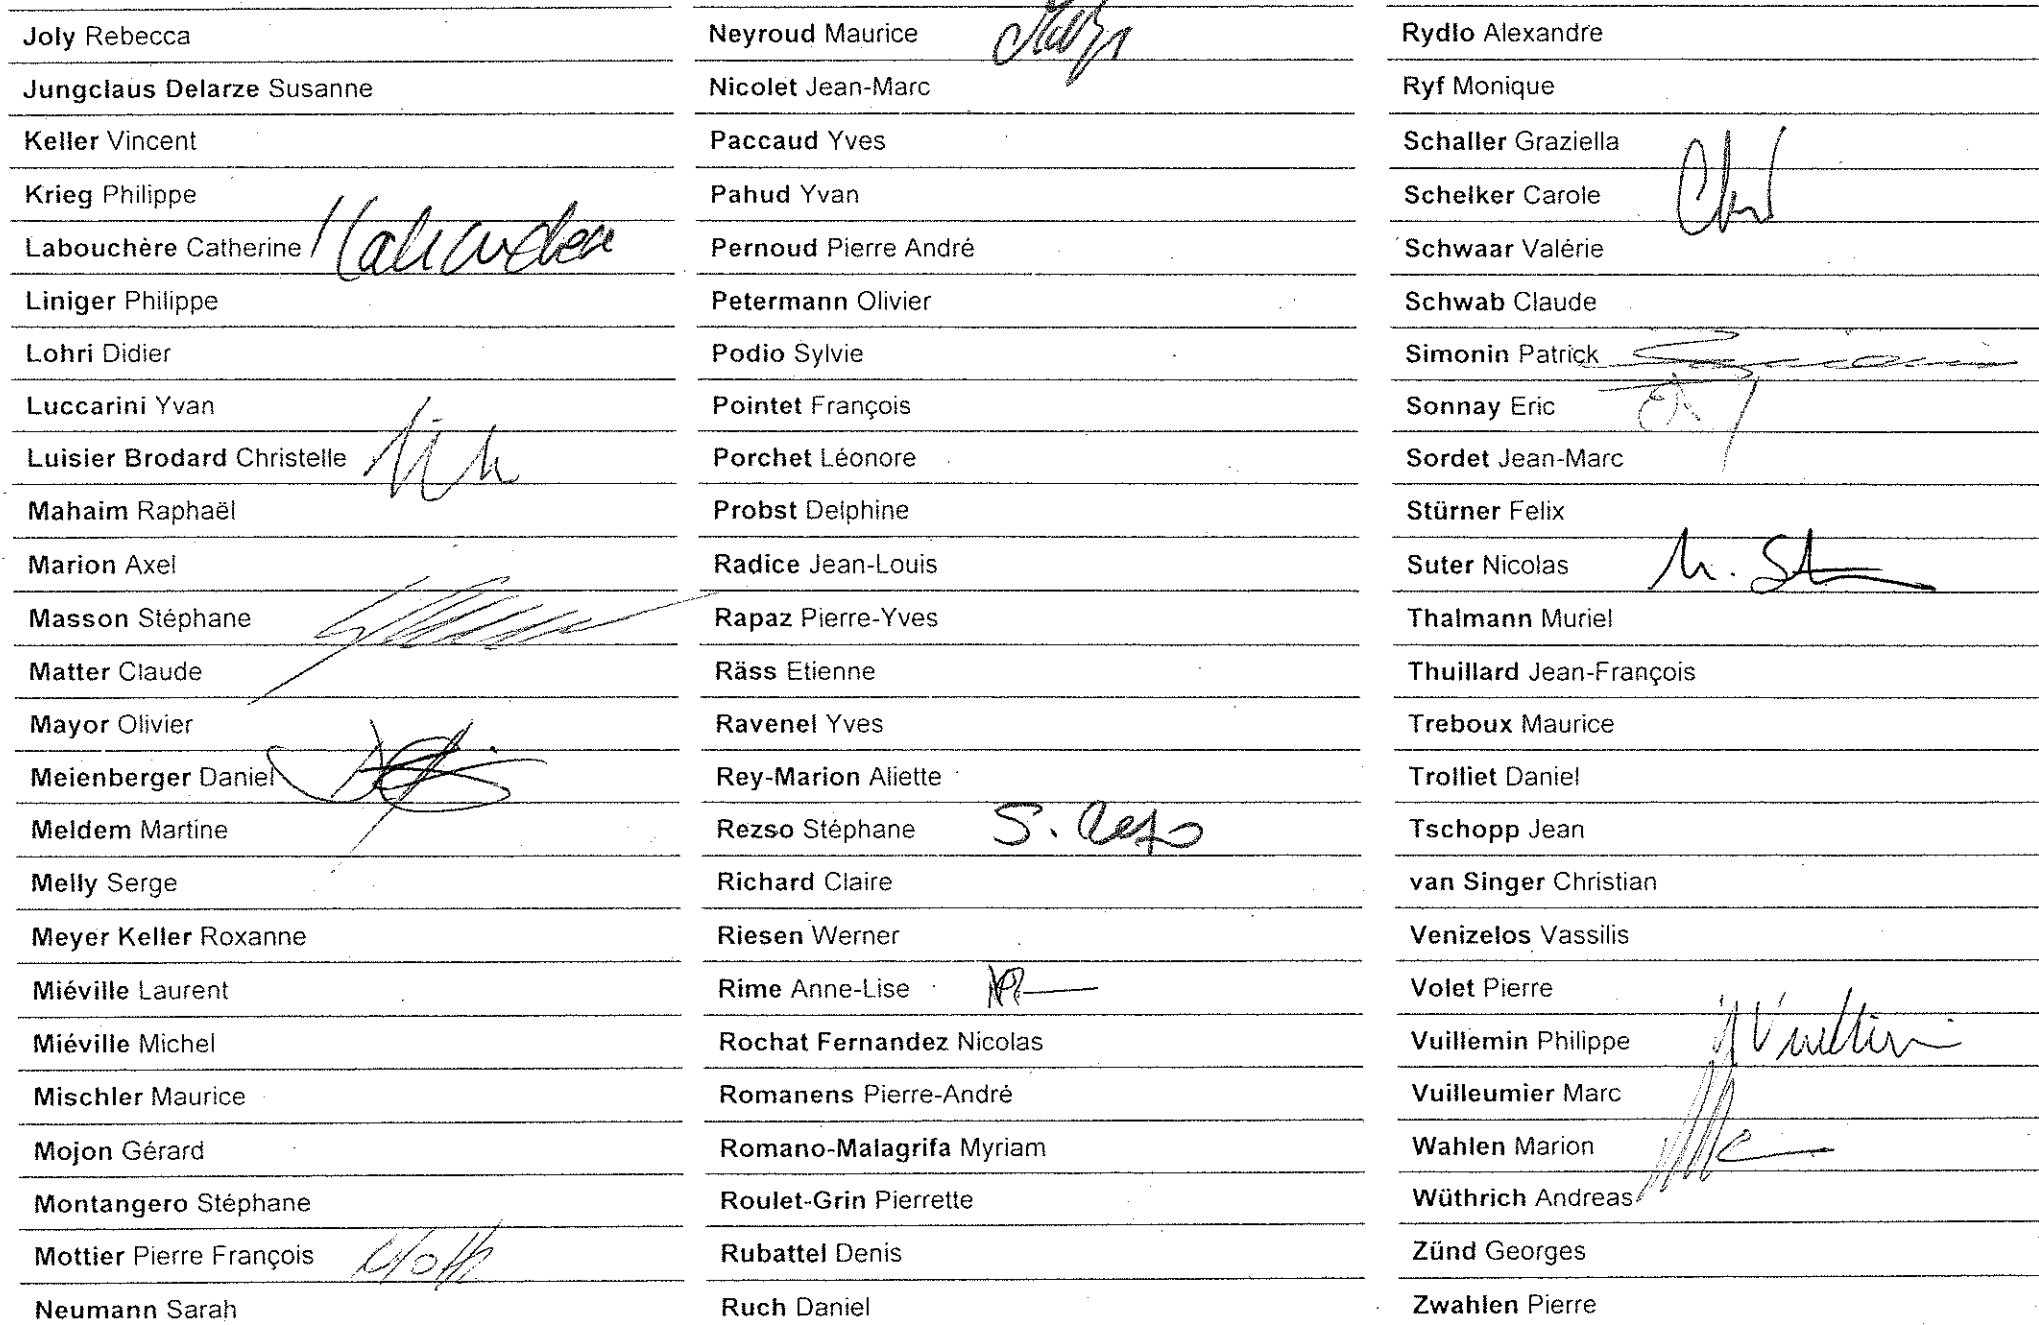 Joly Rebecca
Jungclaus Delarze Susanne
Keller Vincent
Krieg Philippe
Labouchère Catherine
Liniger Philippe
Lohri Didier
Luccarini Yvan
Luisier Brodard Christelle
Mahaim Raphaël
Marion Axel
Masson Stéphane
Matter Claude
Mayor Olivier
Meienberger Daniel
Meldem Martine
Melly Serge
Meyer Keller Roxanne
Miéville Laurent
Miéville Michel
Mischler Maurice
Mojon Gérard
Montangero Stéphane
Mottier Pierre François
Neumann Sarah
Neyroud Maurice
Nicolet Jean-Marc
Paccaud Yves
Pahud Yvan
Pernoud Pierre André
Petermann Olivier
Podio Sylvie
Pointet François
Porchet Léonore
Probst Delphine
Radice Jean-Louis
Rapaz Pierre-Yves
Räss Etienne
Ravenel Yves
Rey-Marion Aliette
Rezso Stéphane S. Rezso
Richard Claire
Riesen Werner
Rime Anne-Lise
Rochat Fernandez Nicolas
Romanens Pierre-André
Romano-Malagrifa Myriam
Roulet-Grin Pierrette
Rubattel Denis
Ruch Daniel
Rydlo Alexandre
Ryf Monique
Schaller Graziella
Schelker Carole
Schwaar Valérie
Schwab Claude
Simonin Patrick
Sonnay Eric
Sordet Jean-Marc
Stürner Felix
Suter Nicolas
Thalmann Muriel
Thuillard Jean-François
Treboux Maurice
Trolliet Daniel
Tschopp Jean
van Singer Christian
Venizelos Vassilis
Volet Pierre
Vuillemin Philippe
Vuilleumier Marc
Wahlen Marion
Wüthrich Andreas
Zünd Georges
Zwahlen Pierre